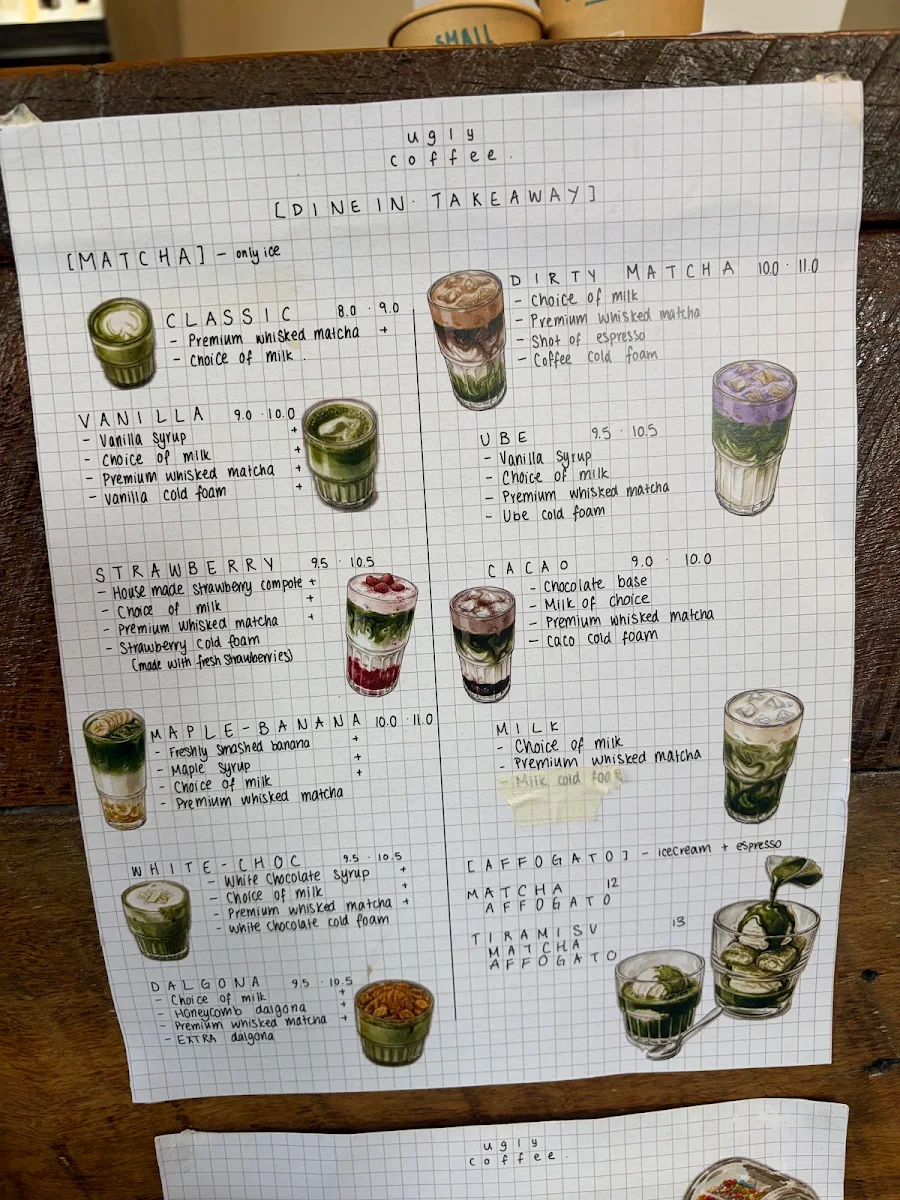 SMALL
ugly
coffee.
[DINE IN · TAKEAWAY]
[MATCHA] - only ice
CLASSIC 8.0 · 9.0
- Premium whisked matcha +
- choice of milk .
VANILLA 9.0 · 10.0
- Vanilla syrup +
- Choice of milk +
- Premium whisked matcha +
- Vanilla cold foam +
STRAWBERRY 9.5 · 10.5
- House made strawberry compote +
- Choice of milk +
- Premium whisked matcha +
- Strawberry cold foam
(made with fresh strawberries)
MAPLE-BANANA 10.0 · 11.0
- Freshly smashed banana +
- Maple syrup +
- Choice of milk +
- Premium whisked matcha
WHITE-CHOC 9.5 · 10.5
- White Chocolate syrup +
- Choice of milk +
- Premium whisked matcha +
- White chocolate cold foam
DALGONA 9.5 · 10.5
- Choice of milk +
- Honeycomb dalgona +
- Premium whisked matcha +
- EXTRA dalgona
DIRTY MATCHA 10.0 · 11.0
- Choice of milk
- Premium whisked matcha
- Shot of espresso
- Coffee cold foam
UBE 9.5 · 10.5
- Vanilla syrup
- Choice of milk
- Premium whisked matcha
- Ube cold foam
CACAO 9.0 · 10.0
- Chocolate base
- Milk of choice
- Premium whisked matcha
- Caco cold foam
MILK
- Choice of milk
- Premium whisked matcha
- Milk cold foam
[AFFOGATO] - icecream + espresso
MATCHA 12
AFFOGATO
TIRAMISU 13
MATCHA
AFFOGATO
ugly
coffee.